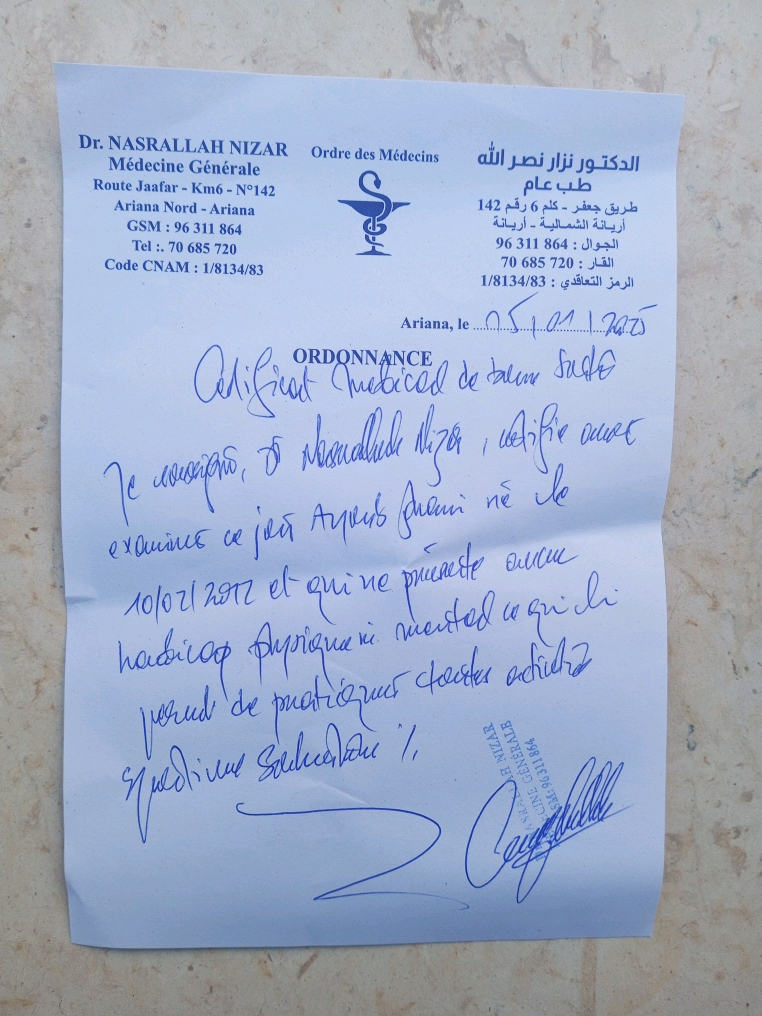 Dr. NASRALLAH NIZAR
Médecine Générale
Route Jaafar - Km6 - N°142
Ariana Nord - Ariana
GSM : 96 311 864
Tel :. 70 685 720
Code CNAM : 1/8134/83
Ordre des Médecins
الدكتور نزار نصر الله
طب عام
طريق جعفر - كلم 6 رقم 142
أريانة الشمالية - أريانة
الجوال : 864 311 96
القار : 720 685 70
الرمز التعاقدي : 1/8134/83
Ariana, le 05/01/2025
ORDONNANCE
Certificat médical de bonne santé
Je soussigné, Dr Nasrallah Nizar, certifie avoir
examiné ce jour né le
10/02/2012 et qui ne présente aucun
handicap physique ni mental ce qui lui
permet de pratiquer toutes activités
sportives
NASRALLAH NIZAR
MEDECINE GÉNÉRALE
GSM: 96 311 864